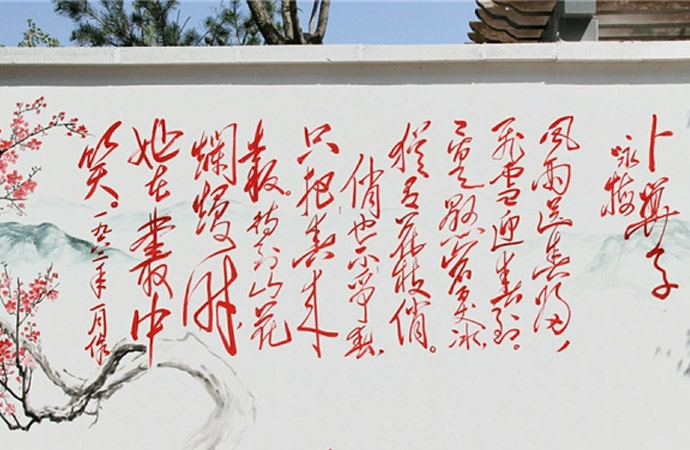 卜算子
咏梅
風雨送春歸,
飛雪迎春到。
已是懸岩百丈冰,
猶有花枝俏。
俏也不争春,
只把春来
報。待到山花
爛熳时,
她在叢中
笑。一九六二年一月作